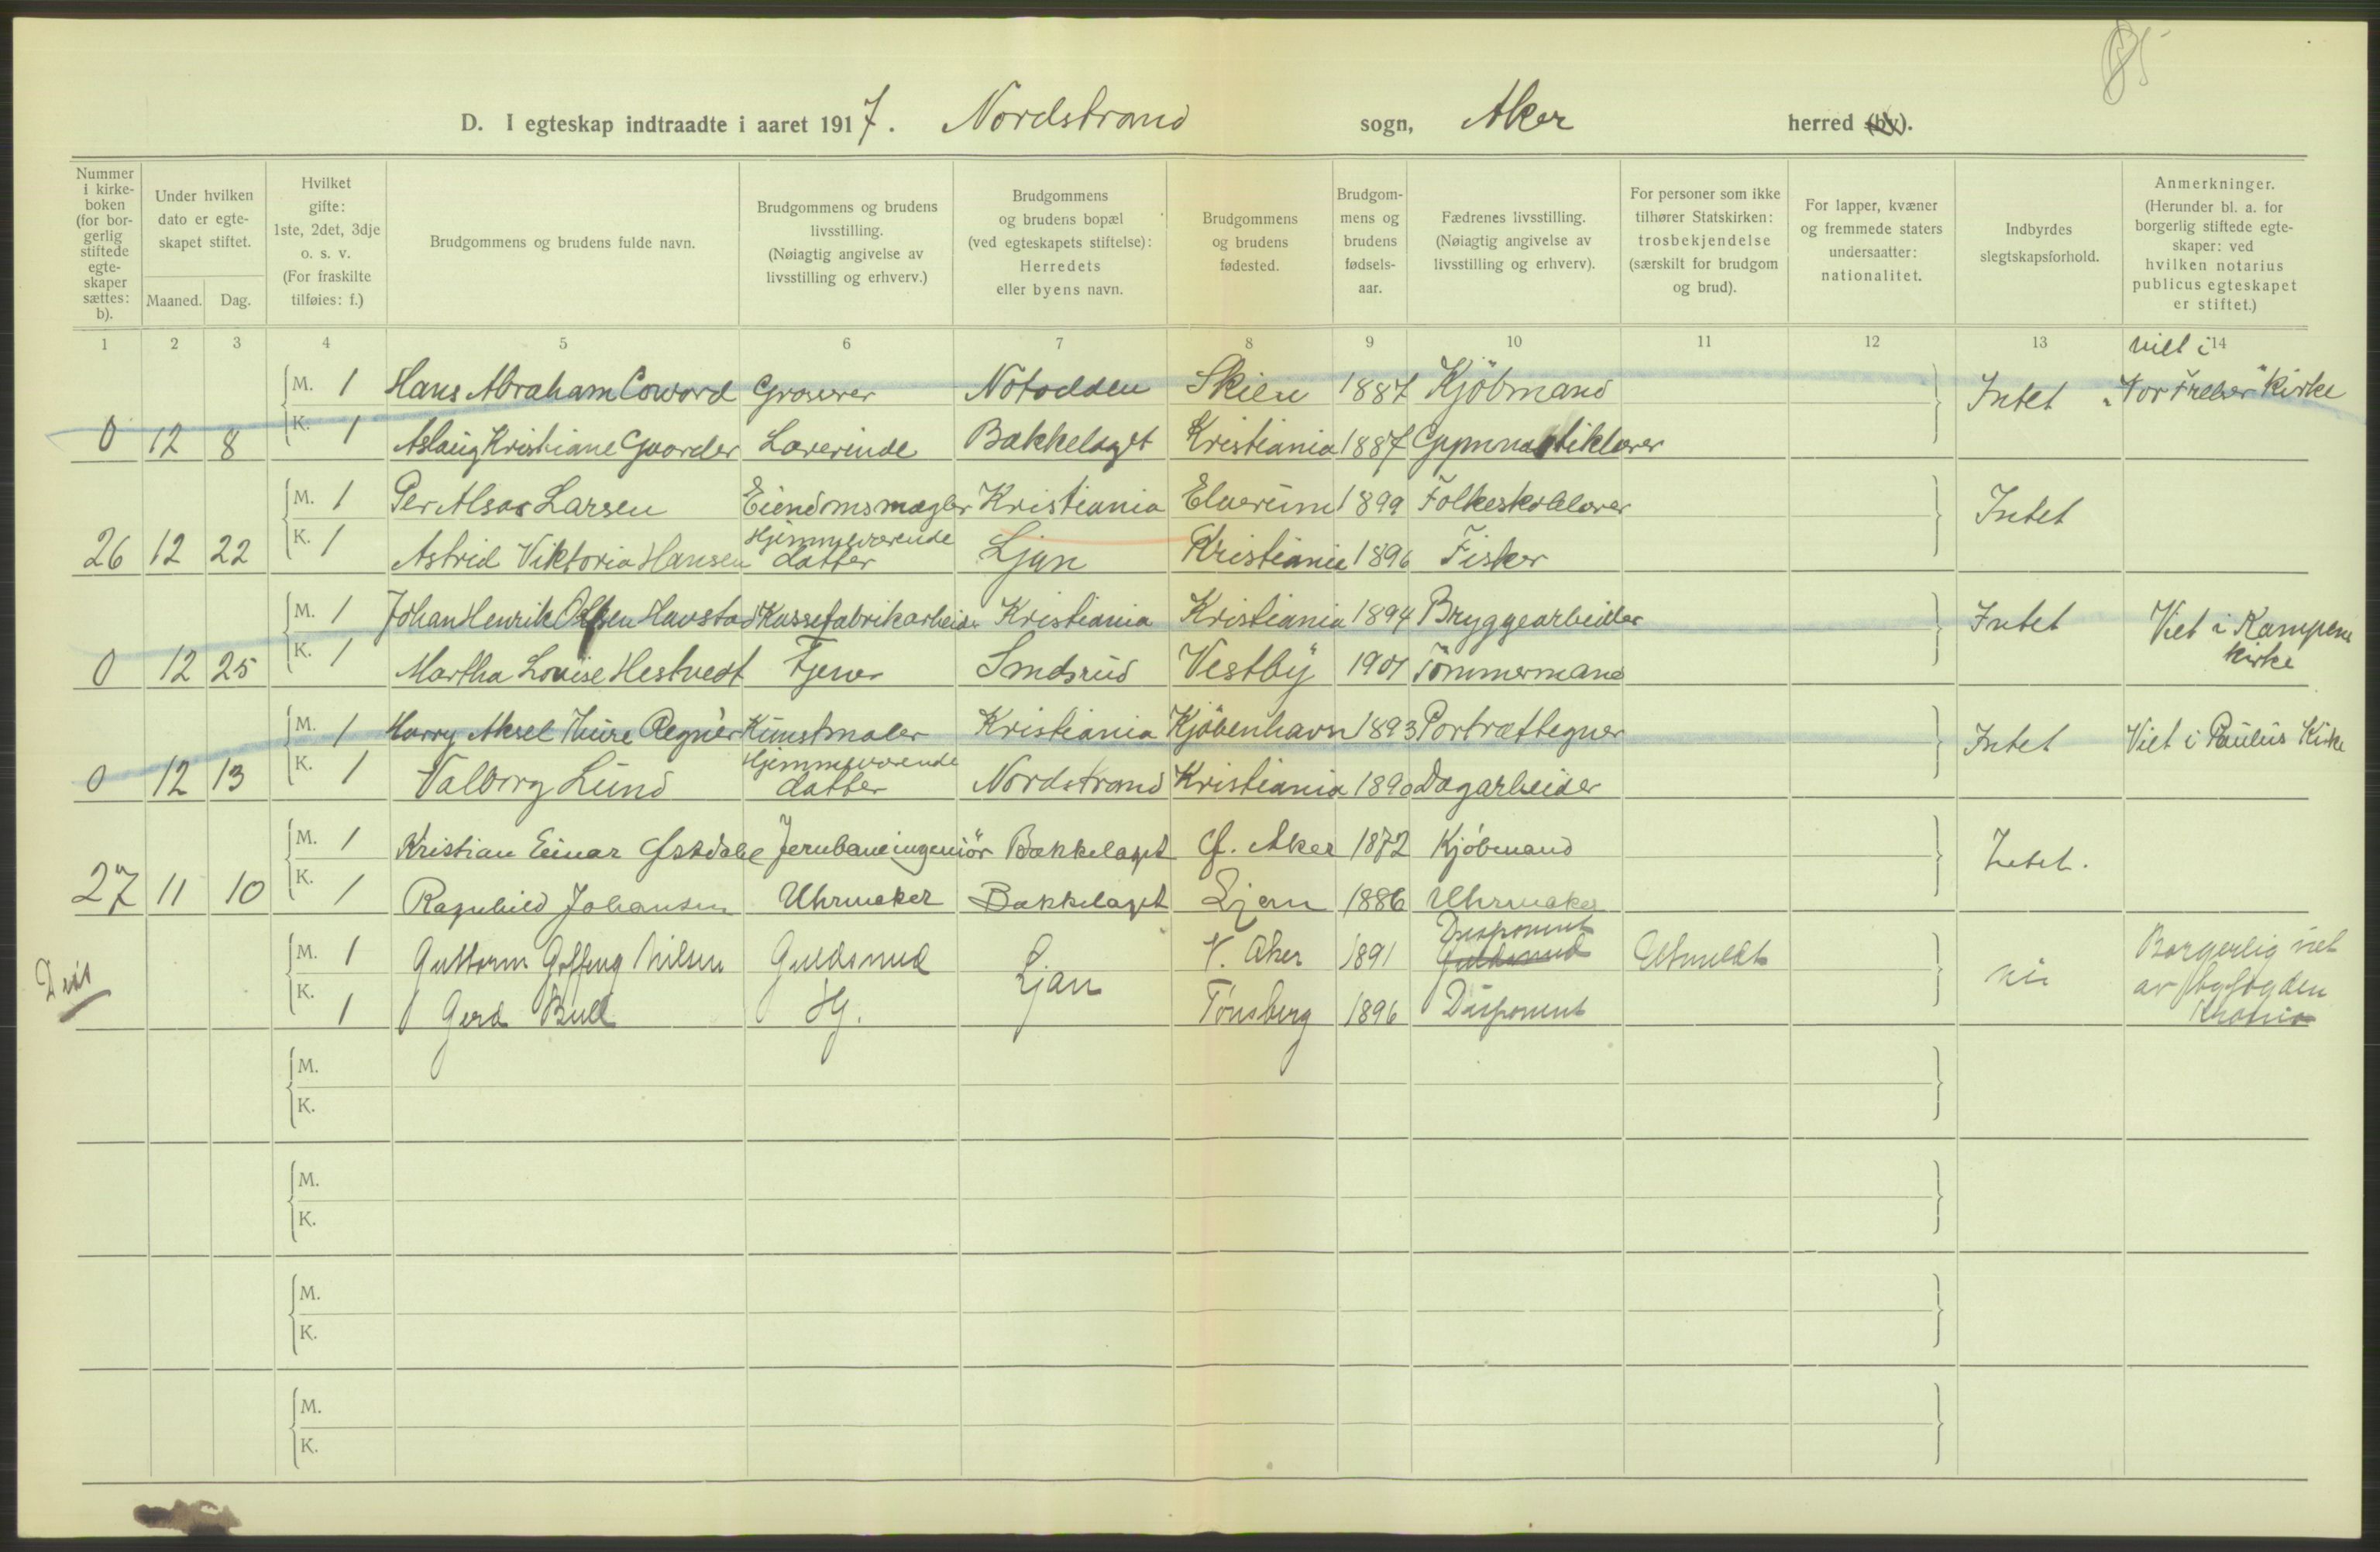 85
D. I egteskap indtraadte i aaret 1917. Nordstrand sogn, Aker herred (by).
Nummer i kirkeboken (for borgerlig stiftede egteskaper sættes: b).
Under hvilken dato er egteskapet stiftet.
Maaned. Dag.
Hvilket gifte: 1ste, 2det, 3dje o. s. v. (For fraskilte tilføies: f.)
Brudgommens og brudens fulde navn.
Brudgommens og brudens livsstilling. (Nøiagtig angivelse av livsstilling og erhverv.)
Brudgommens og brudens bopæl (ved egteskapets stiftelse): Herredets eller byens navn.
Brudgommens og brudens fødested.
Brudgommens og brudens fødselsaar.
Fædrenes livsstilling. (Nøiagtig angivelse av livsstilling og erhverv).
For personer som ikke tilhører Statskirken: trosbekjendelse (særskilt for brudgom og brud).
For lapper, kvæner og fremmede staters undersaatter: nationalitet.
Indbyrdes slegtskapsforhold.
Anmerkninger. (Herunder bl. a. for borgerlig stiftede egteskaper: ved hvilken notarius publicus egteskapet er stiftet.)
1 2 3 4 5 6 7 8 9 10 11 12 13 14
M. 1 Hans Abraham Coword Grosserer Notodden Skien 1887 Kjöbmand Intet viet i "Vor Frelser" Kirke
0 12 8 K. 1 Aslaug Kristiane Gaarder Lærerinde Bækkelaget Kristiania 1887 Gymnastiklærer
M. 1 Per Alsos Larsen Eiendomsmægler Kristiania Elverum 1899 Folkeskolelærer Intet
26 12 22 K. 1 Astrid Viktoria Hansen Hjemmeværende datter Ljan Kristiania 1896 Fisker
M. 1 Johan Henrik Olsen Havstad Kassefabrikarbeider Kristiania Kristiania 1894 Bryggearbeider Intet Viet i Kampens kirke
0 12 25 K. 1 Martha Louise Hestvedt Tjener Smdsrud Vestby 1901 Tömmermand
M. 1 Harry Aksel Thure Regnér Kunstmaler Kristiania Kjöbenhavn 1893 Portrættegner Intet Viet i Paulus Kirke
0 12 13 K. 1 Valborg Lund Hjemmeværende datter Nordstrand Kristiania 1890 Dagarbeider
M. 1 Kristian Einar Østdahl Jernbaneingeniör Bækkelaget Ø. Aker 1872 Kjöbmand Intet.
27 11 10 K. 1 Ragnhild Johansen Uhrmaker Bækkelaget Ljan 1886 Uhrmaker
M. 1 Guttorm Gaffeng Nilsen Guldsmed Ljan V. Aker 1891 Disponent Guldsmed Utmeldt nei Borgerlig viet av byfogden Kristia
K. 1 Gerd Bull Hj. Tønsberg 1896 Disponent
M.
K.
M.
K.
M.
K.
M.
K.